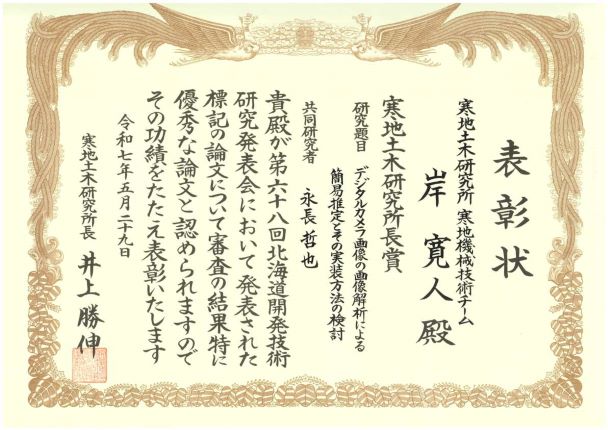 表彰状
寒地土木研究所 寒地機械技術チーム
岸寛人殿
寒地土木研究所長賞
研究題目 デジタルカメラ画像の画像解析による
簡易推定とその実装方法の検討
共同研究者 永長哲也
貴殿が第六十八回北海道開発技術
研究発表会において発表された
標記の論文について審査の結果特に
優秀な論文と認められますので
その功績をたたえ表彰いたします
令和七年五月二十九日
寒地土木研究所長 井上勝伸